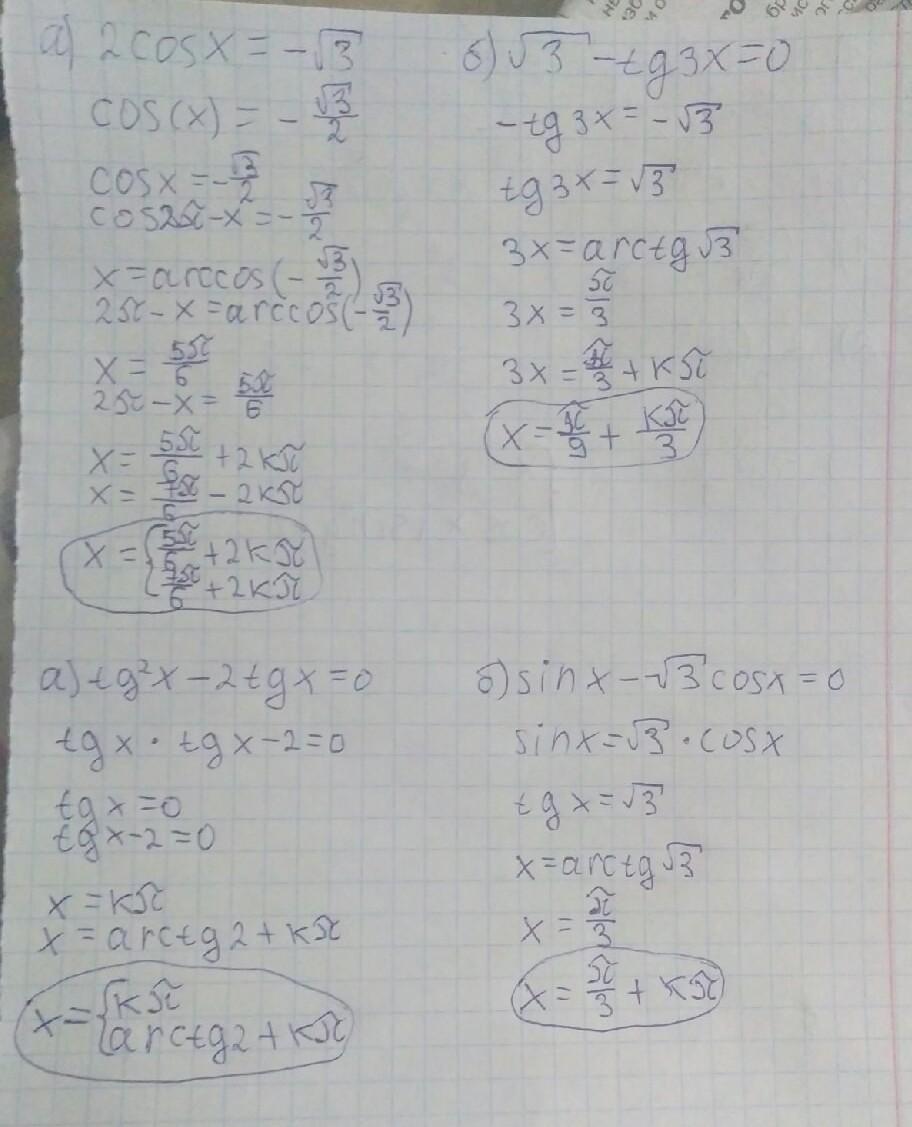 а) 2cosx = -√3
cos(x) = -√3/2
cosx = -√3/2
cos2π-x = -√3/2
x = arccos(-√3/2)
2π-x = arccos(-√3/2)
x = 5π/6
2π-x = 5π/6
x = 5π/6 + 2kπ
x = 7π/6 - 2kπ
x = {5π/6 + 2kπ
7π/6 + 2kπ
б) √3 - tg3x = 0
-tg3x = -√3
tg3x = √3
3x = arctg√3
3x = π/3
3x = π/3 + kπ
x = π/9 + kπ/3
а) tg²x - 2tgx = 0
tgx · tgx - 2 = 0
tgx = 0
tgx - 2 = 0
x = kπ
x = arctg2 + kπ
x = {kπ
arctg2 + kπ
б) sinx - √3cosx = 0
sinx = √3 · cosx
tgx = √3
x = arctg√3
x = π/3
x = π/3 + kπ